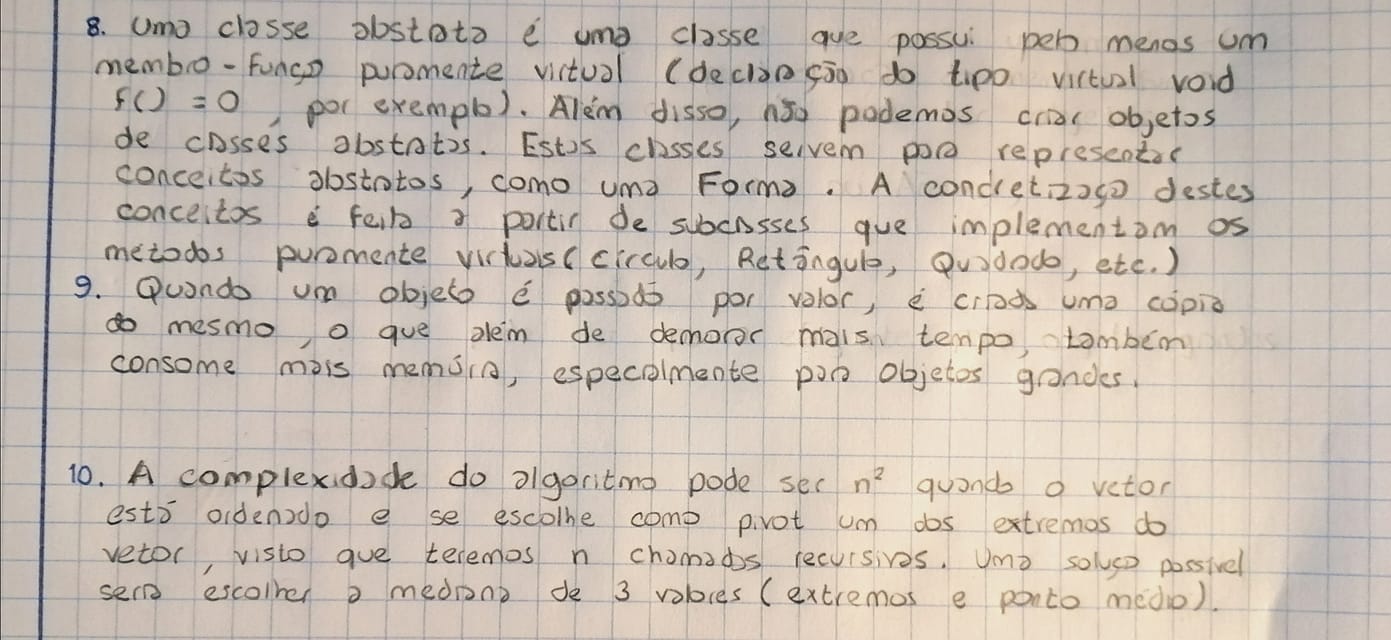 8. Uma classe abstrata é uma classe que possui pelo menos um
membro-função puramente virtual (declaração do tipo virtual void
f() = 0, por exemplo). Além disso, não podemos criar objetos
de classes abstratas. Estas classes servem para representar
conceitos abstratos, como uma Forma. A concretização destes
conceitos é feita a partir de subclasses que implementam os
métodos puramente virtuais (Círculo, Retângulo, Quadrado, etc.)
9. Quando um objeto é passado por valor, é criada uma cópia
do mesmo, o que além de demorar mais tempo, também
consome mais memória, especialmente para objetos grandes.
10. A complexidade do algoritmo pode ser n² quando o vetor
está ordenado e se escolhe como pivot um dos extremos do
vetor, visto que teremos n chamadas recursivas. Uma solução possível
seria escolher a mediana de 3 valores (extremos e ponto médio).